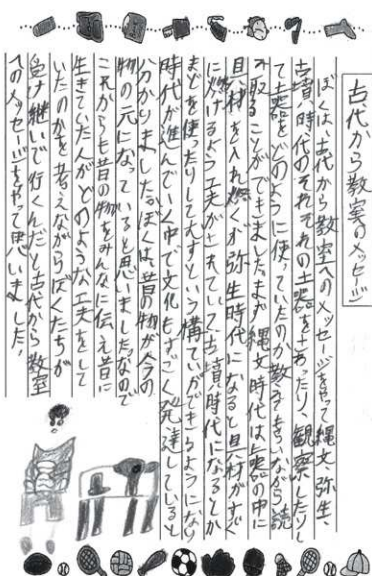 古代から教室のメッセージ
ぼくは、古代から教室へのメッセージをやって縄文、弥生、
古墳、時代のそれぞれの土器をさわったり、観察したりし
て土器をどのように使っていたのか教えてもらいながら読
み取ることができました。まず縄文時代は土器の中に
具材を入れ焼くが弥生時代になると具材がすぐ
に焼けるよう工夫がされていて、古墳時代になるとか
まどを使ったりしてむすという構ていができるようになり
時代が進んでいく中で文化もすごく発達していると
分かりました。ぼくは、昔の物が今の
物の元になっていると思いました。なので
これからも昔の物をみんなに伝え昔に
生きていた人がどのような工夫をして
いたのかを考えながらぼくたちが
受け継いで行くんだと古代から教室
へのメッセージをやって思いました。